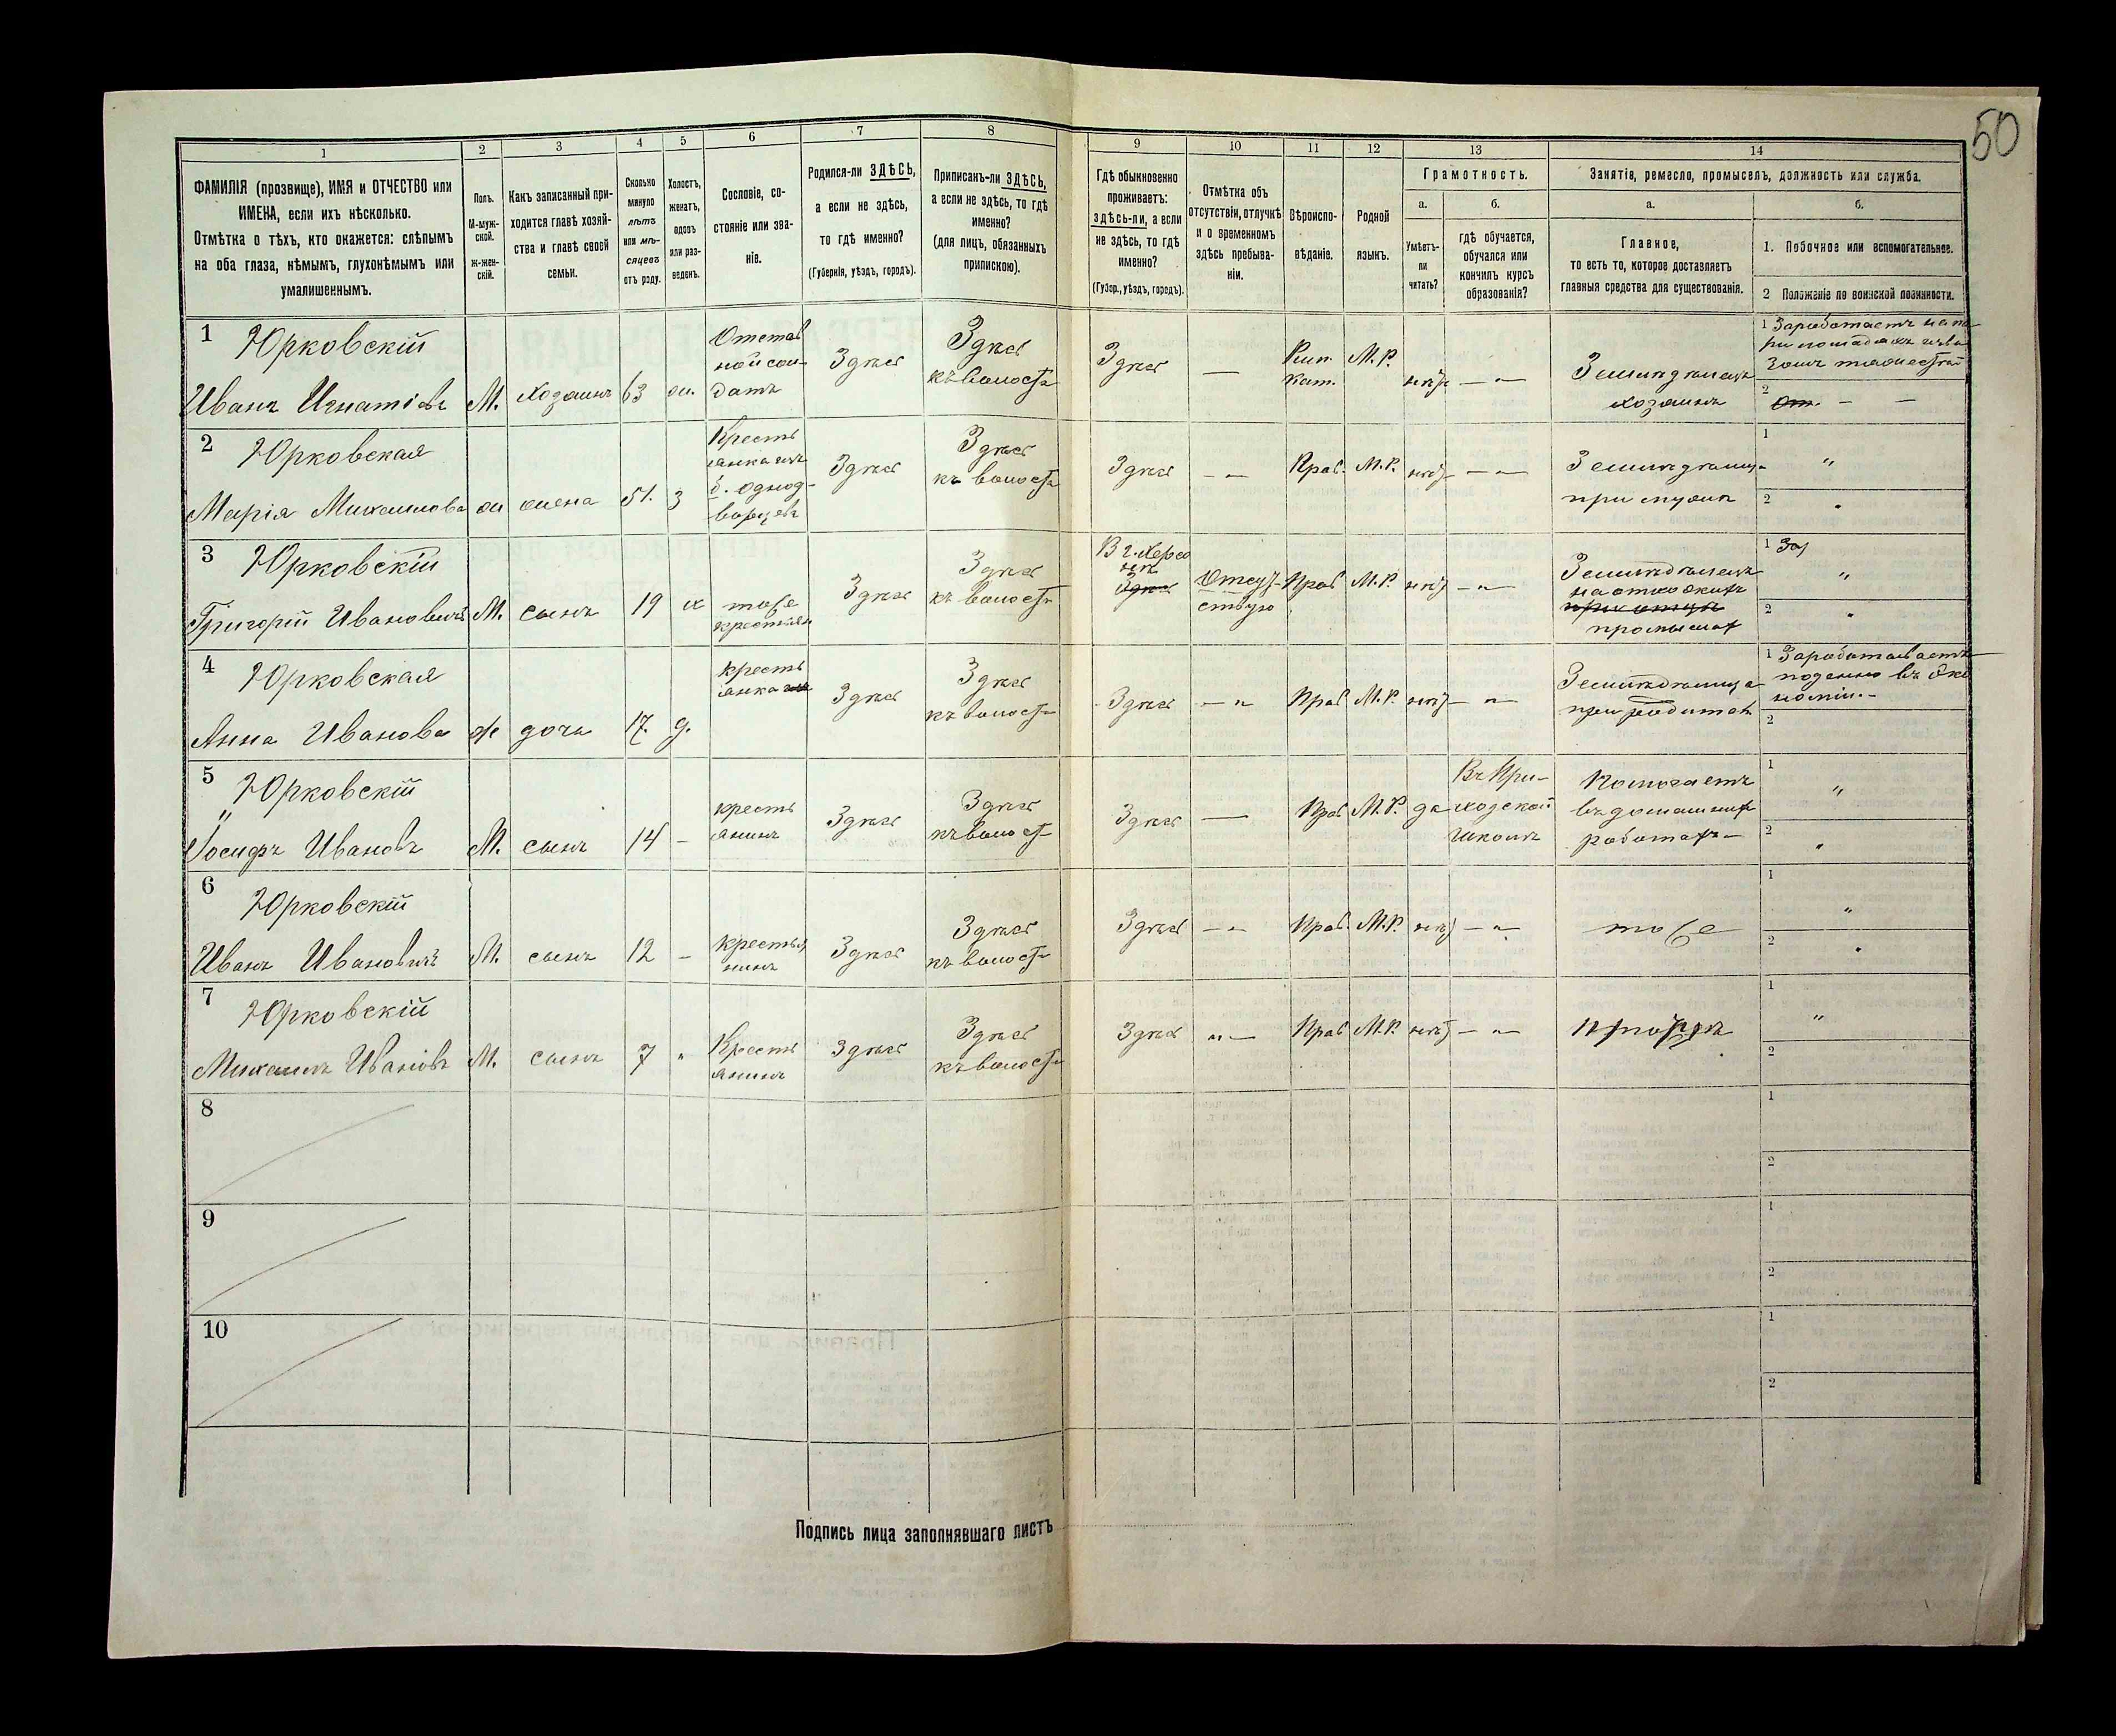 50
1
2
3
4
5
6
7
8
9
10
11
12
13
14
ФАМИЛІЯ (прозвище), ИМЯ и ОТЧЕСТВО или
ИМЕНА, если ихъ нѣсколько.
Отмѣтка о тѣхъ, кто окажется: слѣпымъ
на оба глаза, нѣмымъ, глухонѣмымъ или
умалишеннымъ.
Полъ.
М-муж-
ской.
Ж-жен-
скій.
Какъ записанный при-
ходится главѣ хозяй-
ства и главѣ своей
семьи.
Сколько
минуло
лѣтъ
или мѣ-
сяцевъ
отъ роду.
Холостъ,
женатъ,
вдовъ
или раз-
веденъ.
Сословіе, со-
стояніе или зва-
ніе.
Родился-ли ЗДѢСЬ,
а если не здѣсь,
то гдѣ именно?
(Губернія, уѣздъ, городъ).
Приписанъ-ли ЗДѢСЬ,
а если не здѣсь, то гдѣ
именно?
(для лицъ, обязанныхъ
припискою).
Гдѣ обыкновенно
проживаетъ:
здѣсь-ли, а если
не здѣсь, то гдѣ
именно?
(Губер., уѣздъ, городъ).
Отмѣтка объ
отсутствіи, отлучкѣ
и о временномъ
здѣсь пребыва-
ніи.
Вѣроиспо-
вѣданіе.
Родной
языкъ.
Грамотность.
а.
Умѣетъ-
ли
читать?
б.
гдѣ обучается,
обучался или
кончилъ курсъ
образованія?
Занятіе, ремесло, промыселъ, должность или служба.
а.
Главное,
то есть то, которое доставляетъ
главныя средства для существованія.
б.
1. Побочное или вспомогательное.
2 Положеніе по воинской повинности.
1 Юрковскій
Иванъ Игнатіевъ
М.
хозяинъ
63
ж.
Отстав
ной сол-
датъ
Здѣсь
Здѣсь
къ волости
Здѣсь
—
Рим.
Кат.
М.Р.
нѣтъ
— „ —
Земледѣлецъ
хозяинъ
1 Заработаетъ на па
ри лошадяхъ изво
зомъ
2 От. — —
2 Юрковская
Марія Михаилова
ж
жена
51.
з
Кресть
янка изъ
б. однод-
ворцевъ
Здѣсь
Здѣсь
къ волости
Здѣсь
— „
Прав.
М.Р.
нѣтъ
— „ —
Земледѣлица
при мужѣ
1 „
2 „
3 Юрковскій
Григорій Ивановичъ
М.
сынъ
19
х
тоже
крестьян
Здѣсь
Здѣсь
къ волости
В г. Херсо
нѣ
Здѣсь
Отсут-
ствую
Прав
М.Р.
нѣтъ
— „ —
Земледѣлецъ
на отхожихъ
при отцѣ
промыслах
1 За
„
2 „
4 Юрковская
Анна Иванова
ж
дочь
17.
д.
кресть
янка изъ
Здѣсь
Здѣсь
къ волости
Здѣсь
— „
Прав
М.Р.
нѣтъ
— „ —
Земледѣлица
при родител
1 Зарабатываетъ
поденно въ Эко
номіи. -
2
5 Юрковскій
Іосифъ Ивановъ
М.
сынъ
14
—
кресть
янинъ
Здѣсь
Здѣсь
къ волост
Здѣсь
—
Прав
М.Р.
да
Въ При-
ходской
школѣ
Помогаетъ
въ домашних
работах—
1 „
2 „
6 Юрковскій
Иванъ Ивановичъ
М.
сынъ
12
—
крестья
нинъ
Здѣсь
Здѣсь
къ волости
Здѣсь
— „
Прав.
М.Р.
нѣтъ
— „
тоже
1 „
2 „
7 Юрковскій
Михаилъ Ивановъ
М.
сынъ
7
„
Кресть
янинъ
Здѣсь
Здѣсь
къ волости
Здѣсь
„ —
Прав
М.Р.
нѣтъ
— „ —
1 „
2
8
1
2
9
1
2
10
1
2
Подпись лица заполнявшаго листъ